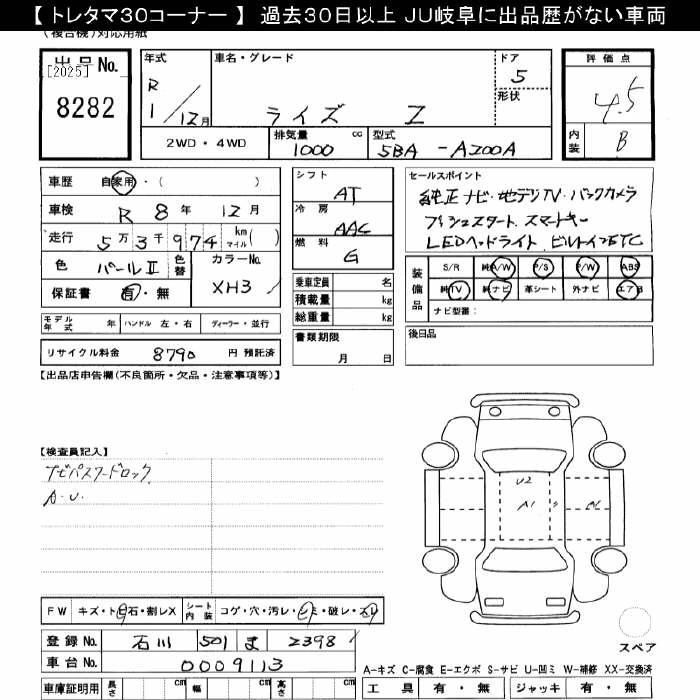 【 トレタマ30コーナー 】 過去30日以上 JU岐阜に出品歴がない車両
(複合機)対応用紙
出品No. [2025]
8282
年式 R 1／12月
車名・グレード
ライズ Z
ドア 5
形状
評価点
4.5
内装 B
2WD・4WD
排気量 cc 1000
型式 5BA -A200A
車歴 自家用・( )
車検 R 8年 12月
走行 5万3千974 km マイル( )
色 パールⅡ 色替
カラーNo. XH3
保証書 有・無
シフト AT
冷房 AAC
燃料 G
乗車定員 名
積載量 kg
総重量 kg
書類期限
月 日
セールスポイント
純正ナビ・地デジTV・バックカメラ
プッシュスタート スマートキー
LEDヘッドライト ビルトインETC
装備品
S/R 純A/W P/S P/W ABS
純TV 純ナビ 革シート 外ナビ エアB
ナビ型番:
後日品
モデル年式 年 ハンドル 左・右 ディーラー・並行
リサイクル料金 8790 円 預託済
【出品店申告欄(不良箇所・欠品・注意事項等)】
【検査員記入】
ナビパスワードロック
A.U.
U2
A1
FW キズ・ト石・割レX シート内装 コゲ・穴・汚レ・シミ・破レ・スレ
登録No. 石川 501 ま 2398
車台No. 0009113
車庫証明用 長さ cm 幅 cm 高さ cm
スペア
A-キズ C-腐食 E-エクボ S-サビ U-凹ミ W-補修 XX-交換済
工具 有・無 ジャッキ 有・無